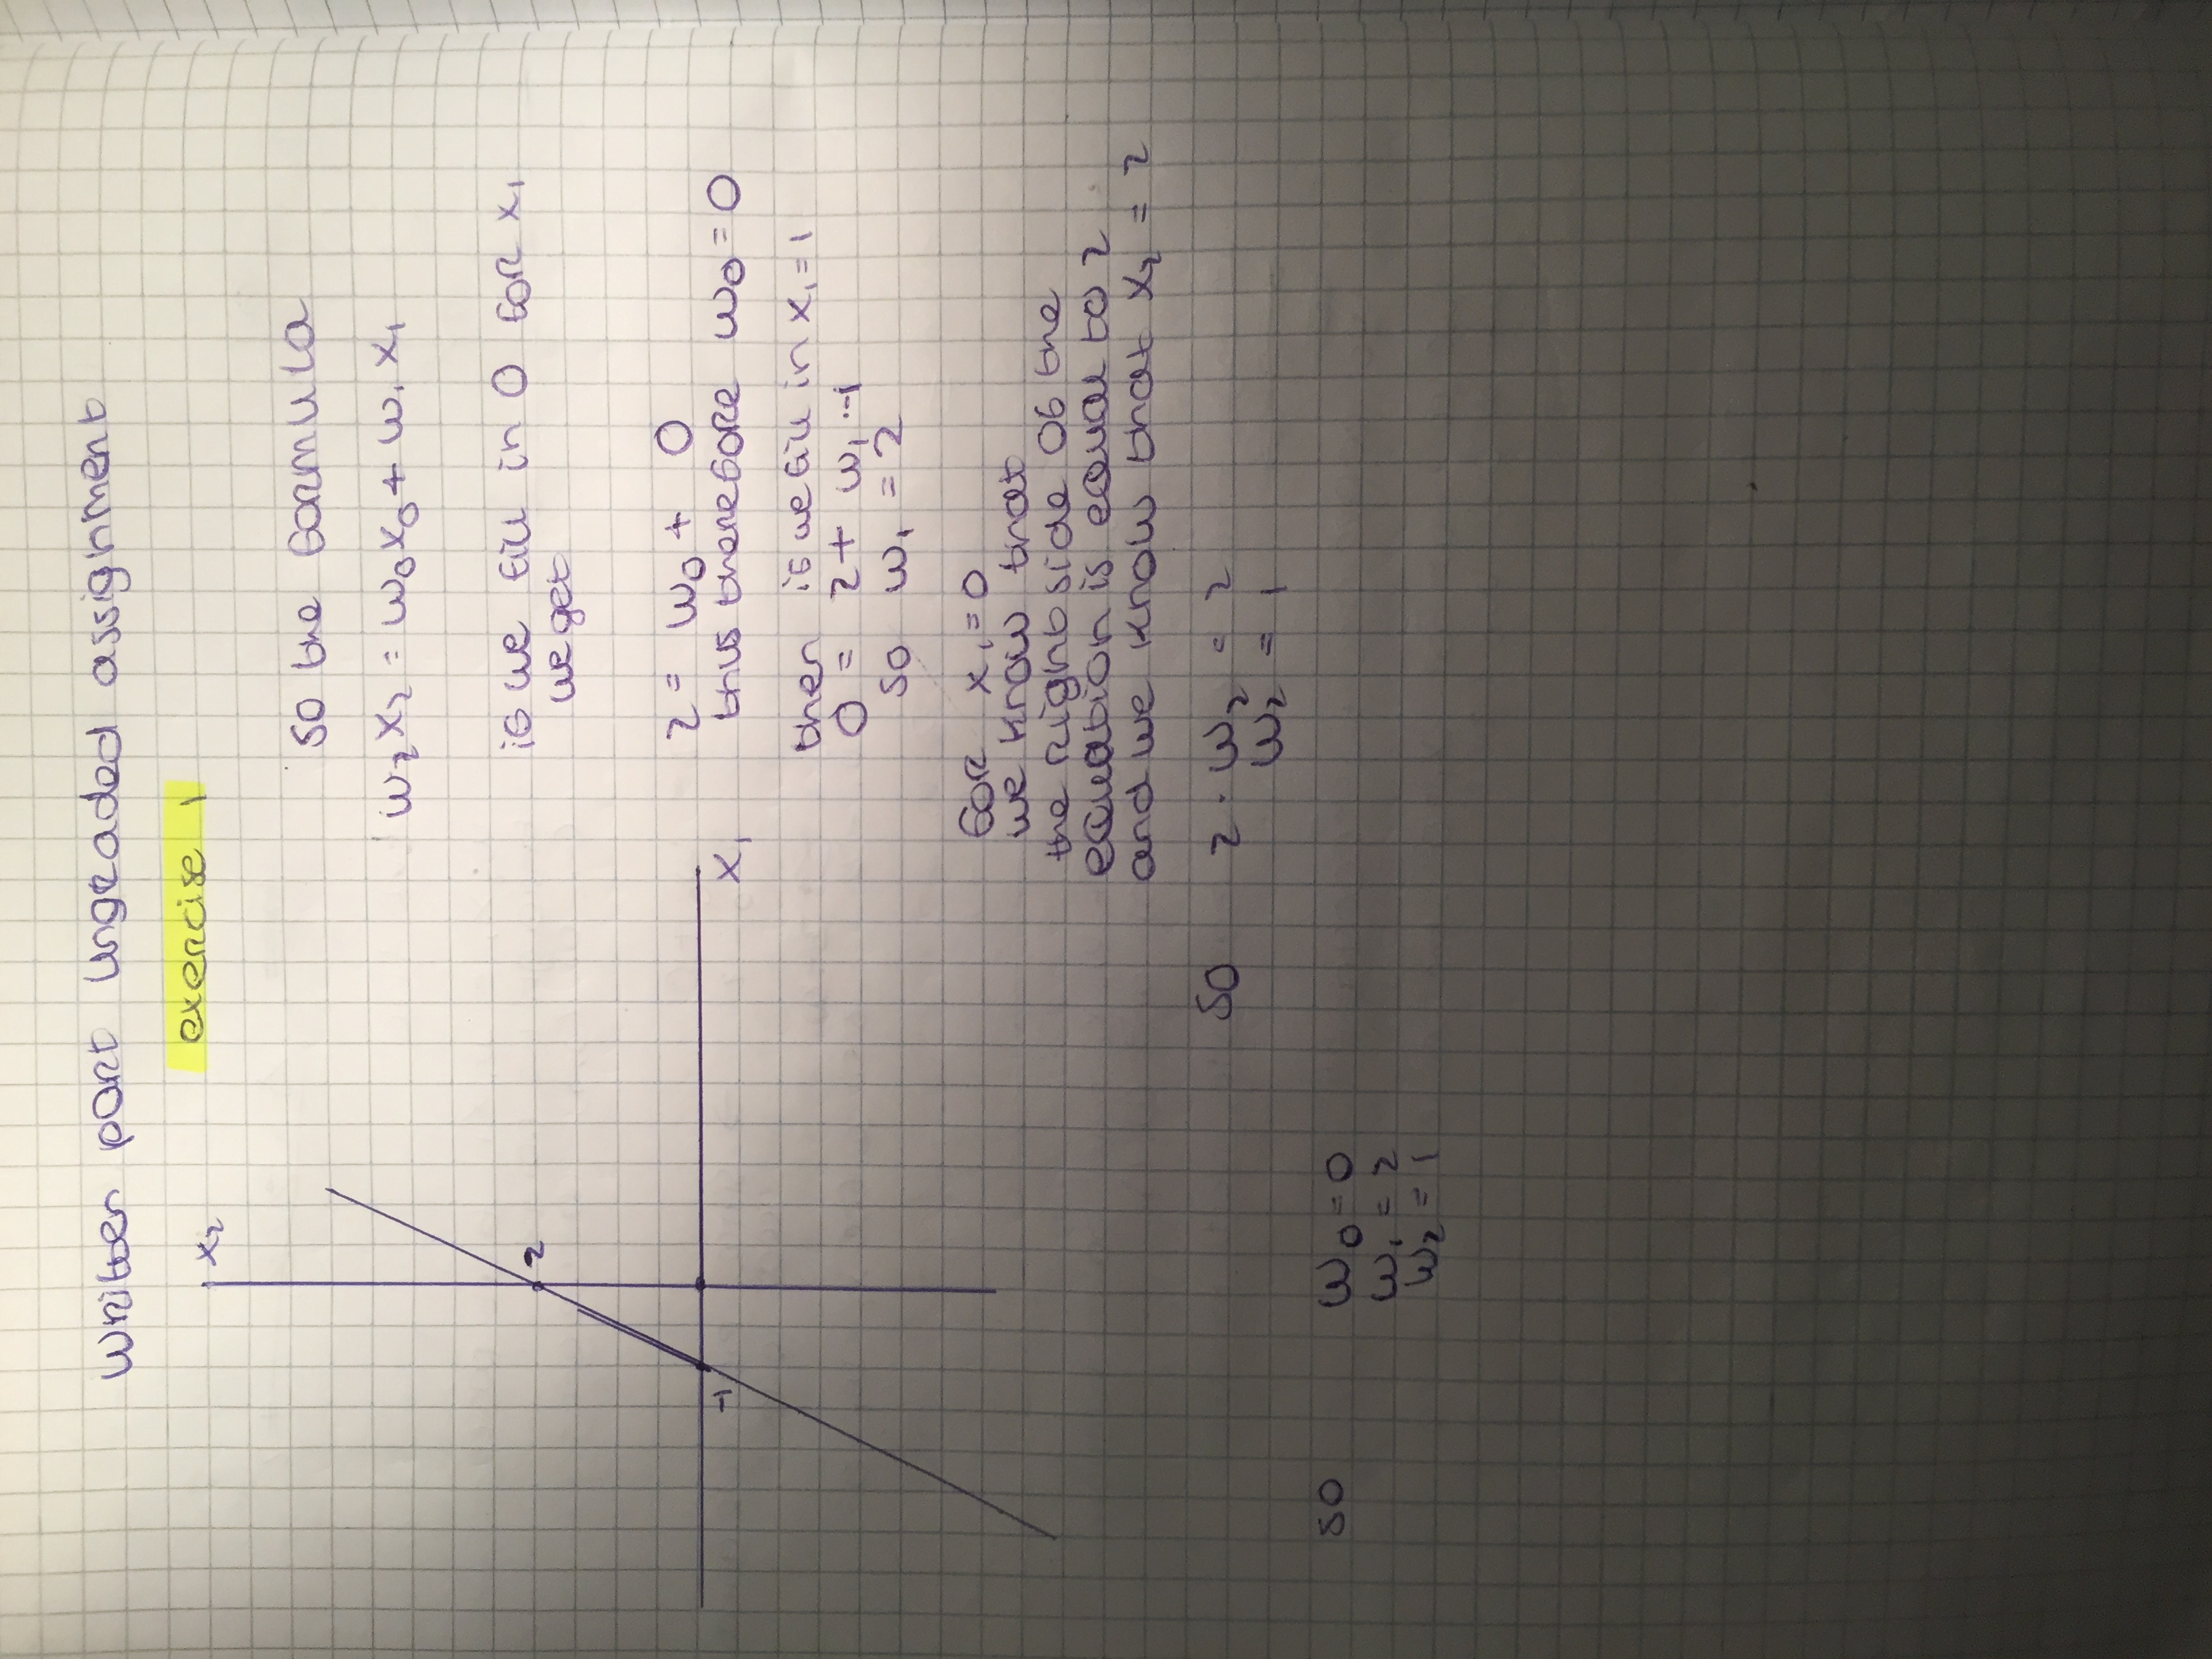 Written part Ungraded assignment
exercise 1
x2
2
-1
x1
so the formula
w2x2 = w0x0 + w1x1
if we fill in 0 for x1
we get
2 = w0 + 0
thus therefore w0 = 0
then if we fill in x1 = 1
0 = 2 + w1 · -1
so w1 = 2
for x1 = 0
we know that
the right side of the
equation is equal to 2
and we know that x2 = 2
so 2 · w2 = 2
w2 = 1
so w0 = 0
w1 = 2
w2 = 1